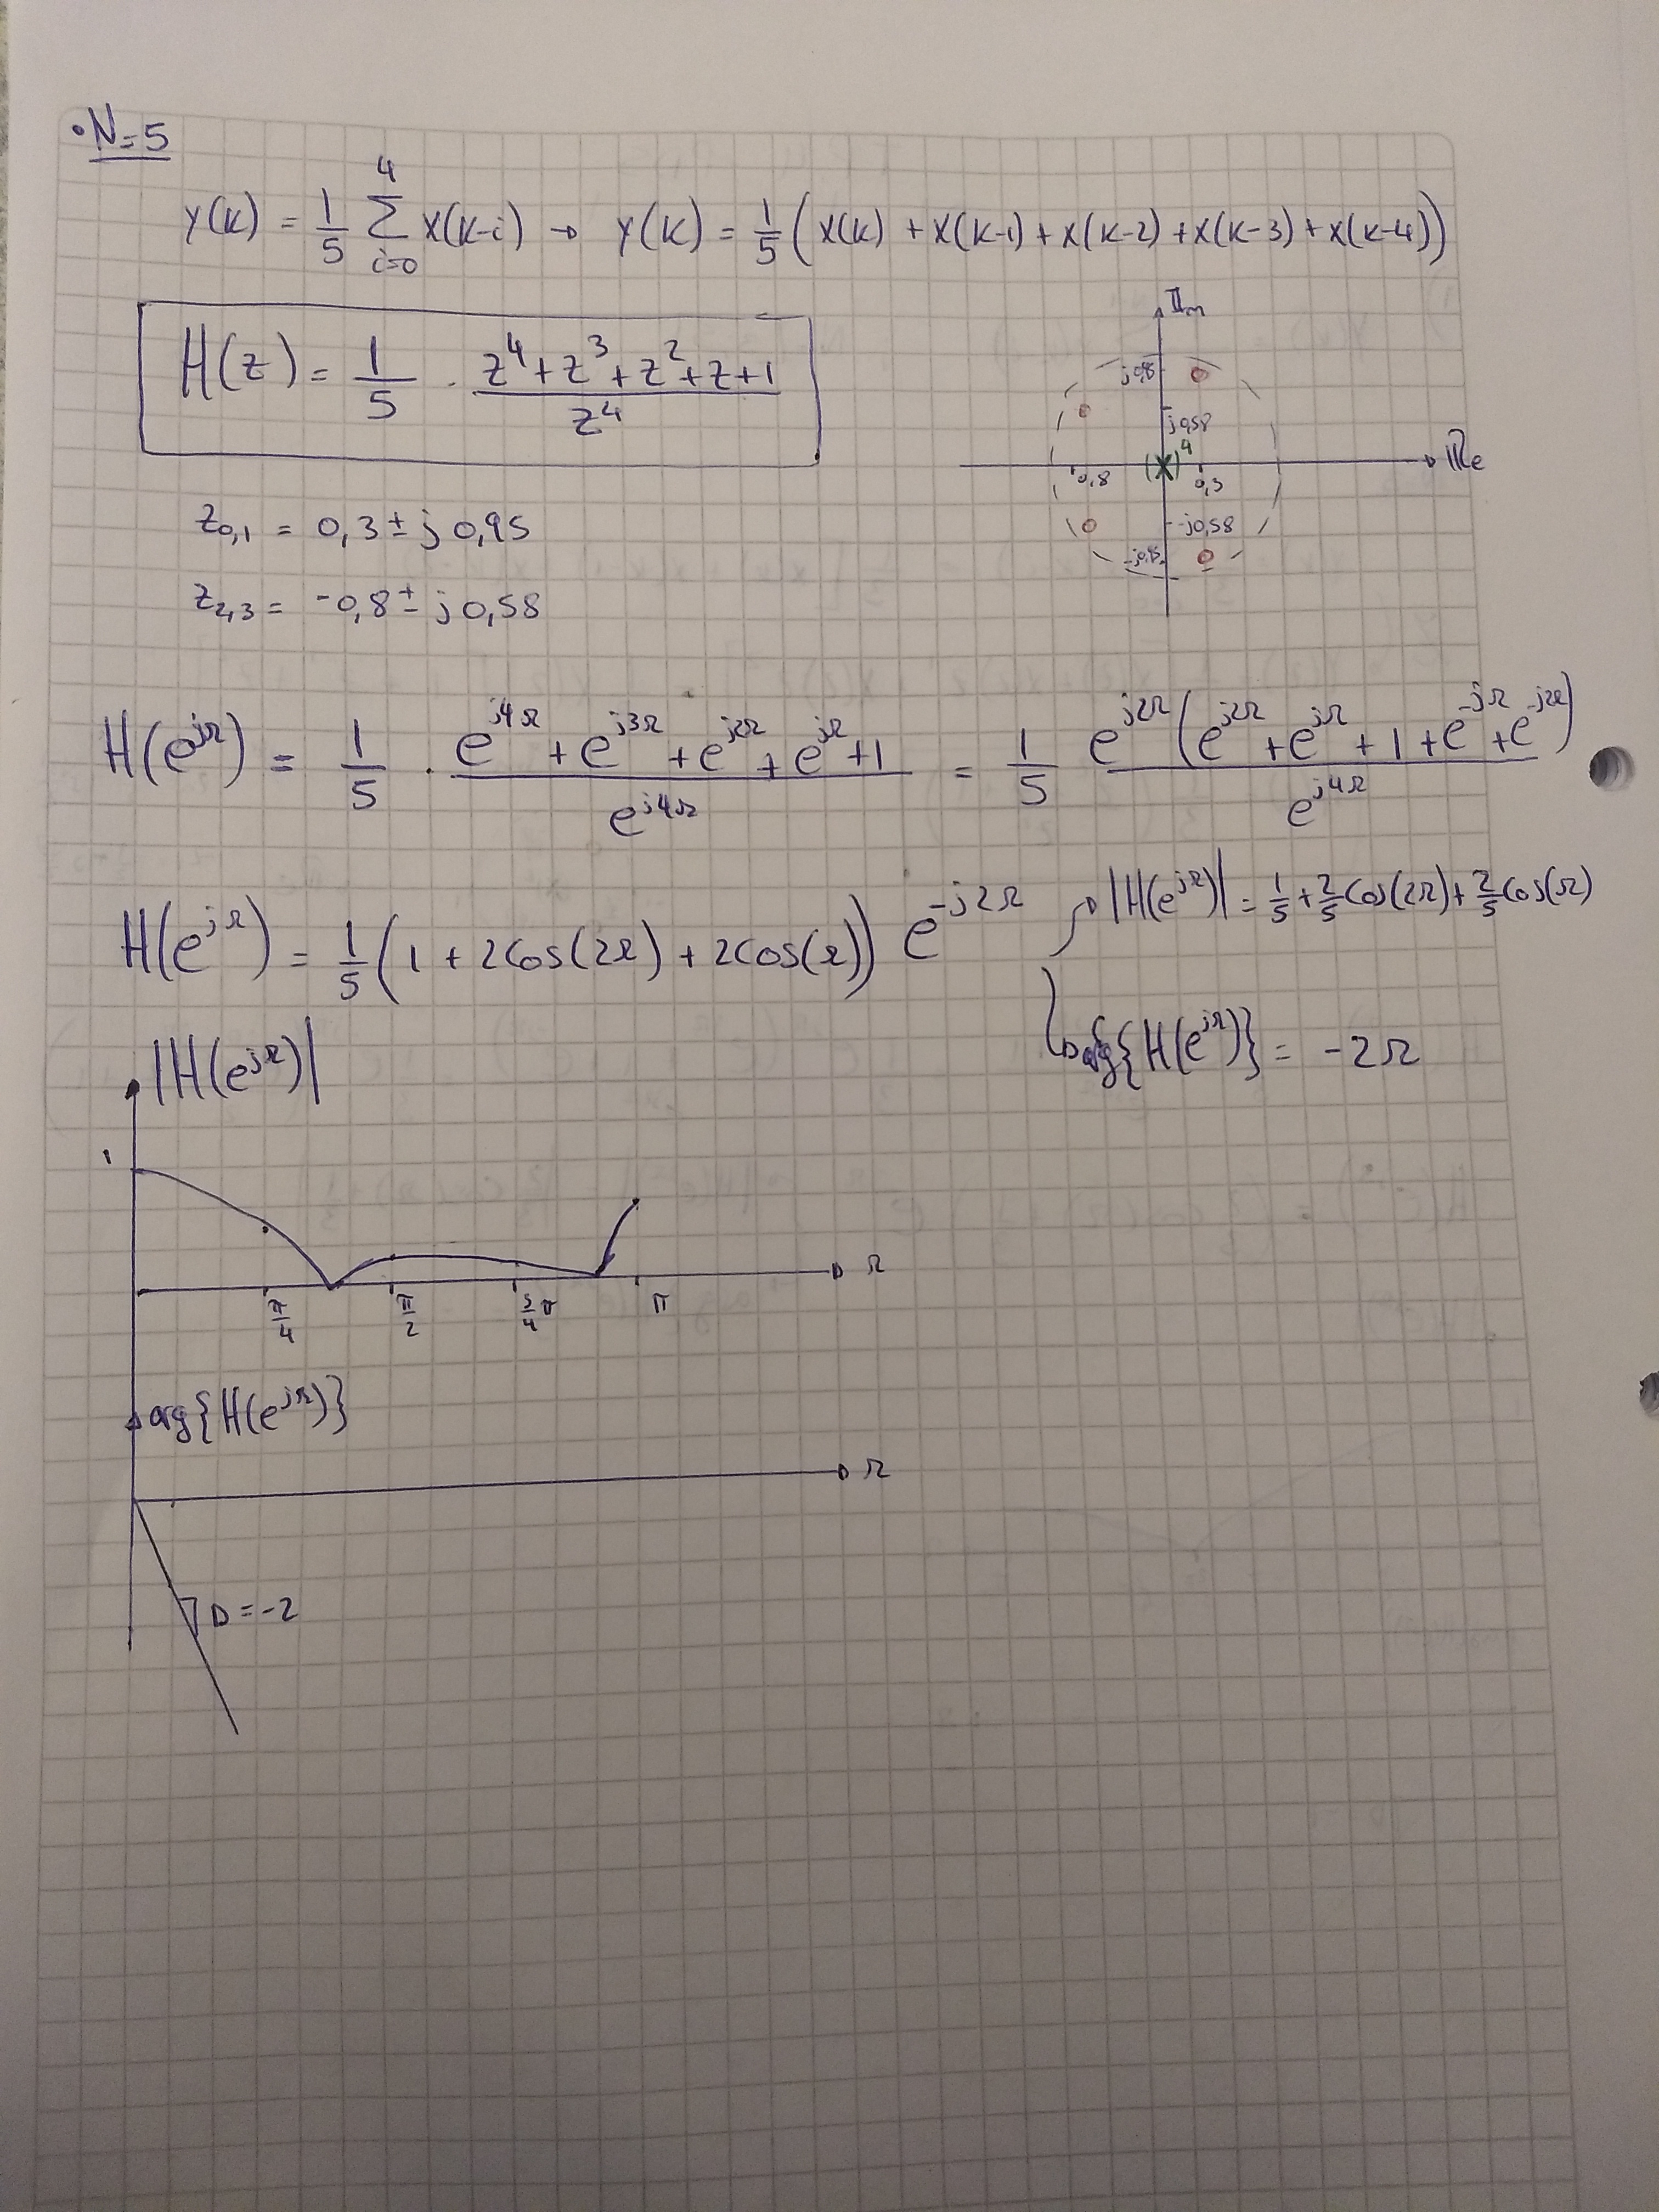 • N=5
y(k) = 1/5 Σ_{i=0}^{4} x(k-i) → y(k) = 1/5 (x(k) + x(k-1) + x(k-2) + x(k-3) + x(k-4))
H(z) = 1/5 · (z^4+z^3+z^2+z+1)/z^4
Im
j0,95
j0,58
( x )^4
Re
-0,8
0,3
-j0,58
-j0,95
z_{0,1} = 0,3 ± j 0,95
z_{2,3} = -0,8 ± j 0,58
H(e^{jΩ}) = 1/5 · (e^{j4Ω} + e^{j3Ω} + e^{j2Ω} + e^{jΩ} + 1)/e^{j4Ω} = 1/5 e^{j2Ω}(e^{j2Ω} + e^{jΩ} + 1 + e^{-jΩ} + e^{-j2Ω})/e^{j4Ω}
H(e^{jΩ}) = 1/5 (1 + 2cos(2Ω) + 2cos(Ω)) e^{-j2Ω}
|H(e^{jΩ})| = 1/5 + 2/5 cos(2Ω) + 2/5 cos(Ω)
arg{H(e^{jΩ})} = -2Ω
|H(e^{jΩ})|
1
Ω
π/4
π/2
3/4 π
π
arg{H(e^{jΩ})}
Ω
D = -2